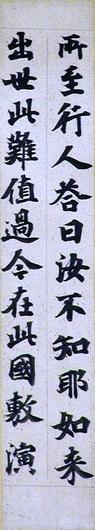 所至行人答曰汝不知耶如来
出世此難值過今在此國敷演